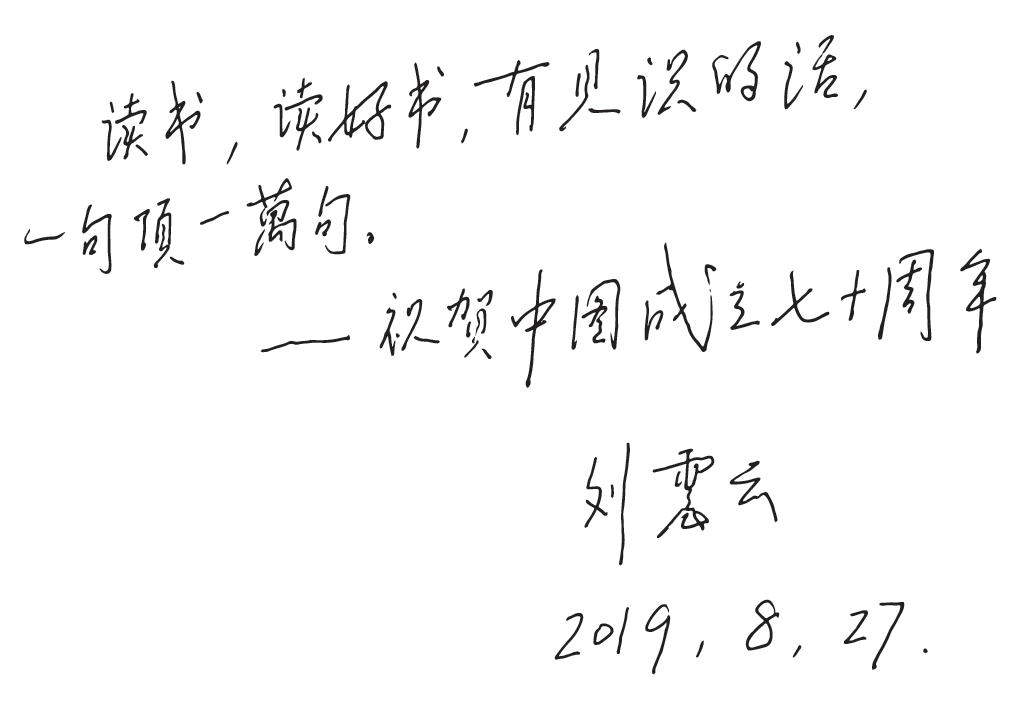 读书,读好书,有见识的话,
一句頂一萬句。
——祝贺中国成立七十周年
刘震云
2019,8,27.